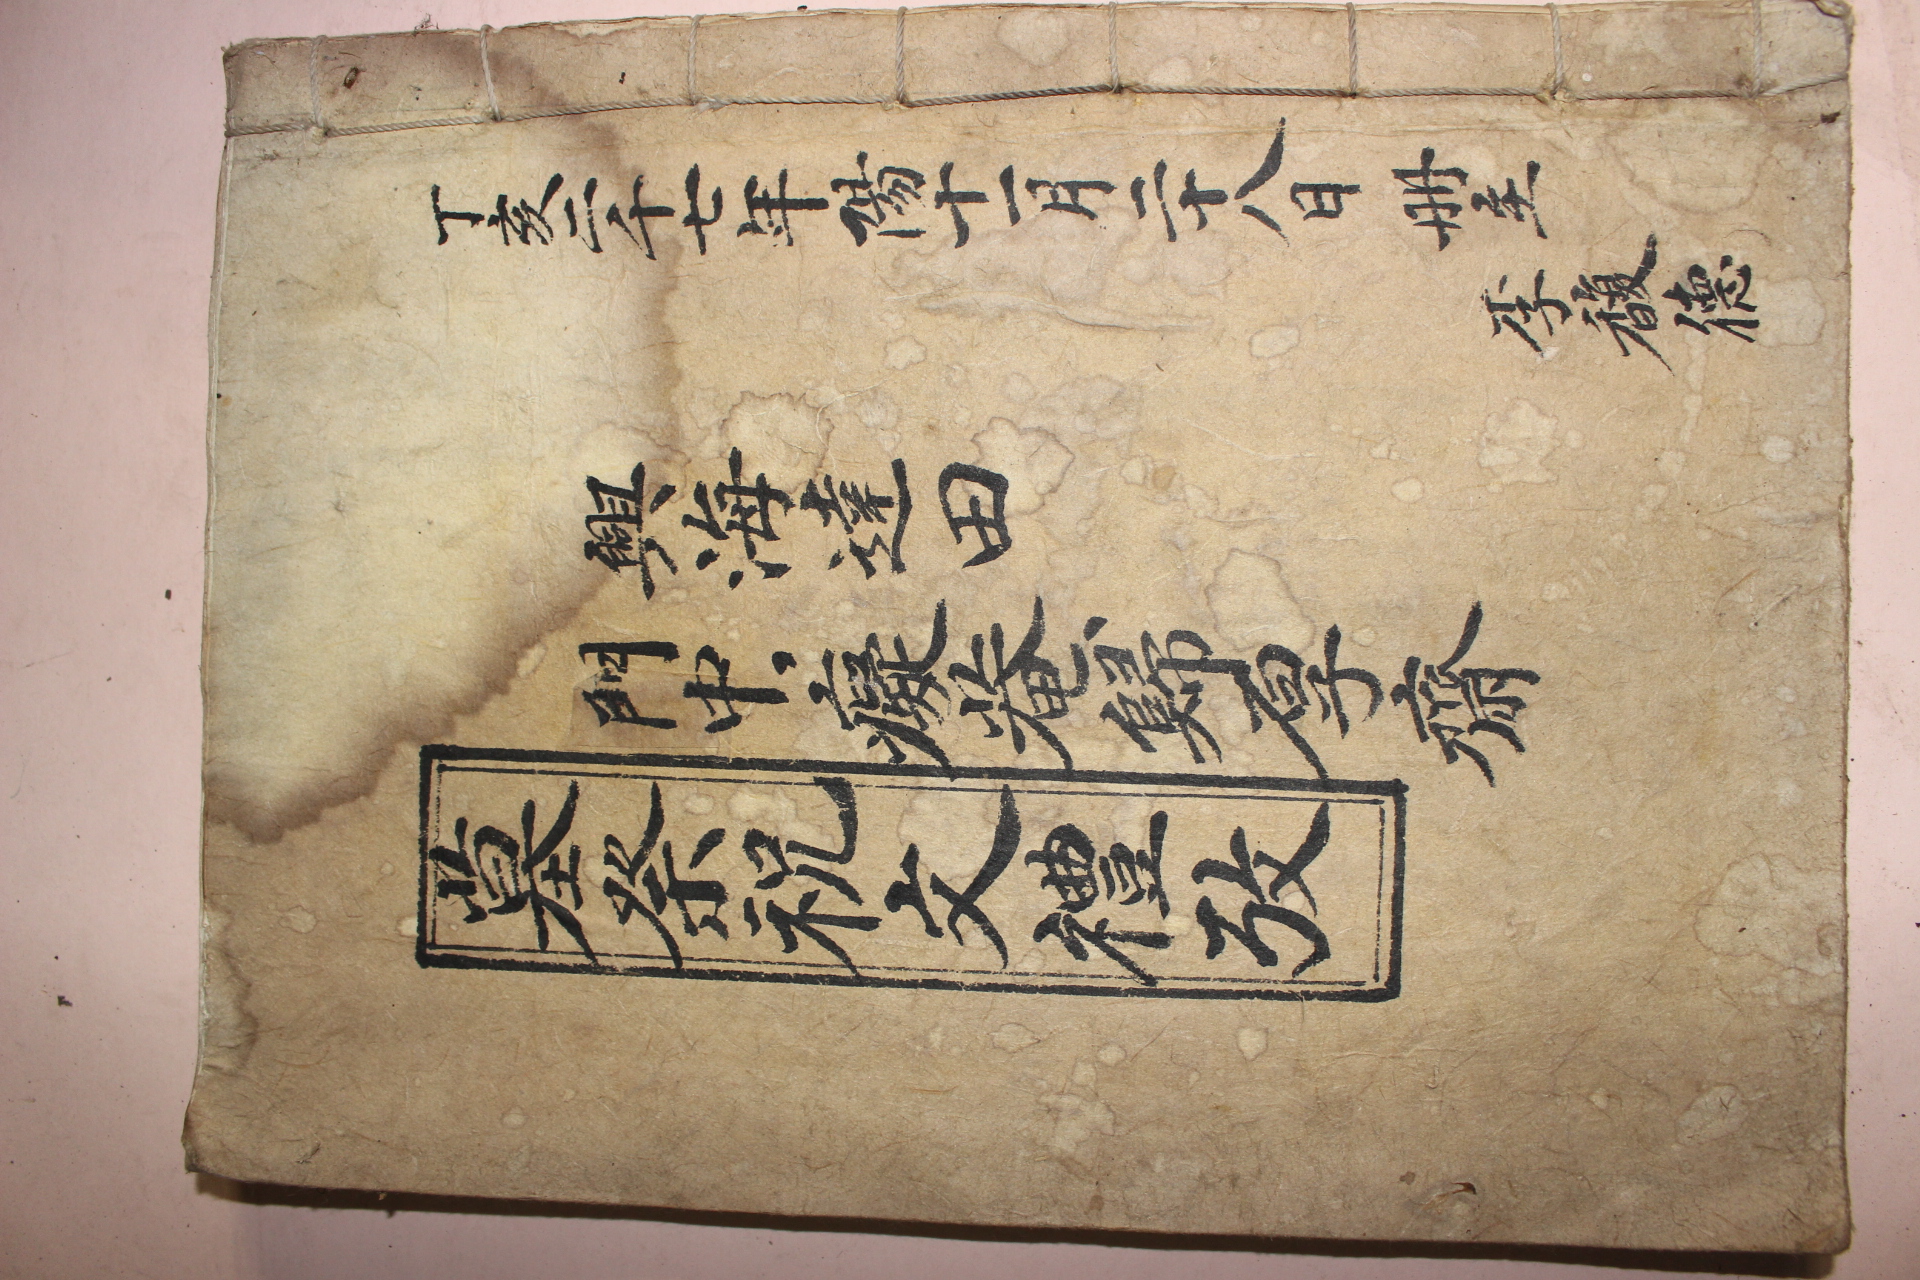 丁亥二千七年陽十一月二十八日 冊主
李馥德
興海達田
門中、癡菴、歸厚齋
墓祭祝文禮攷